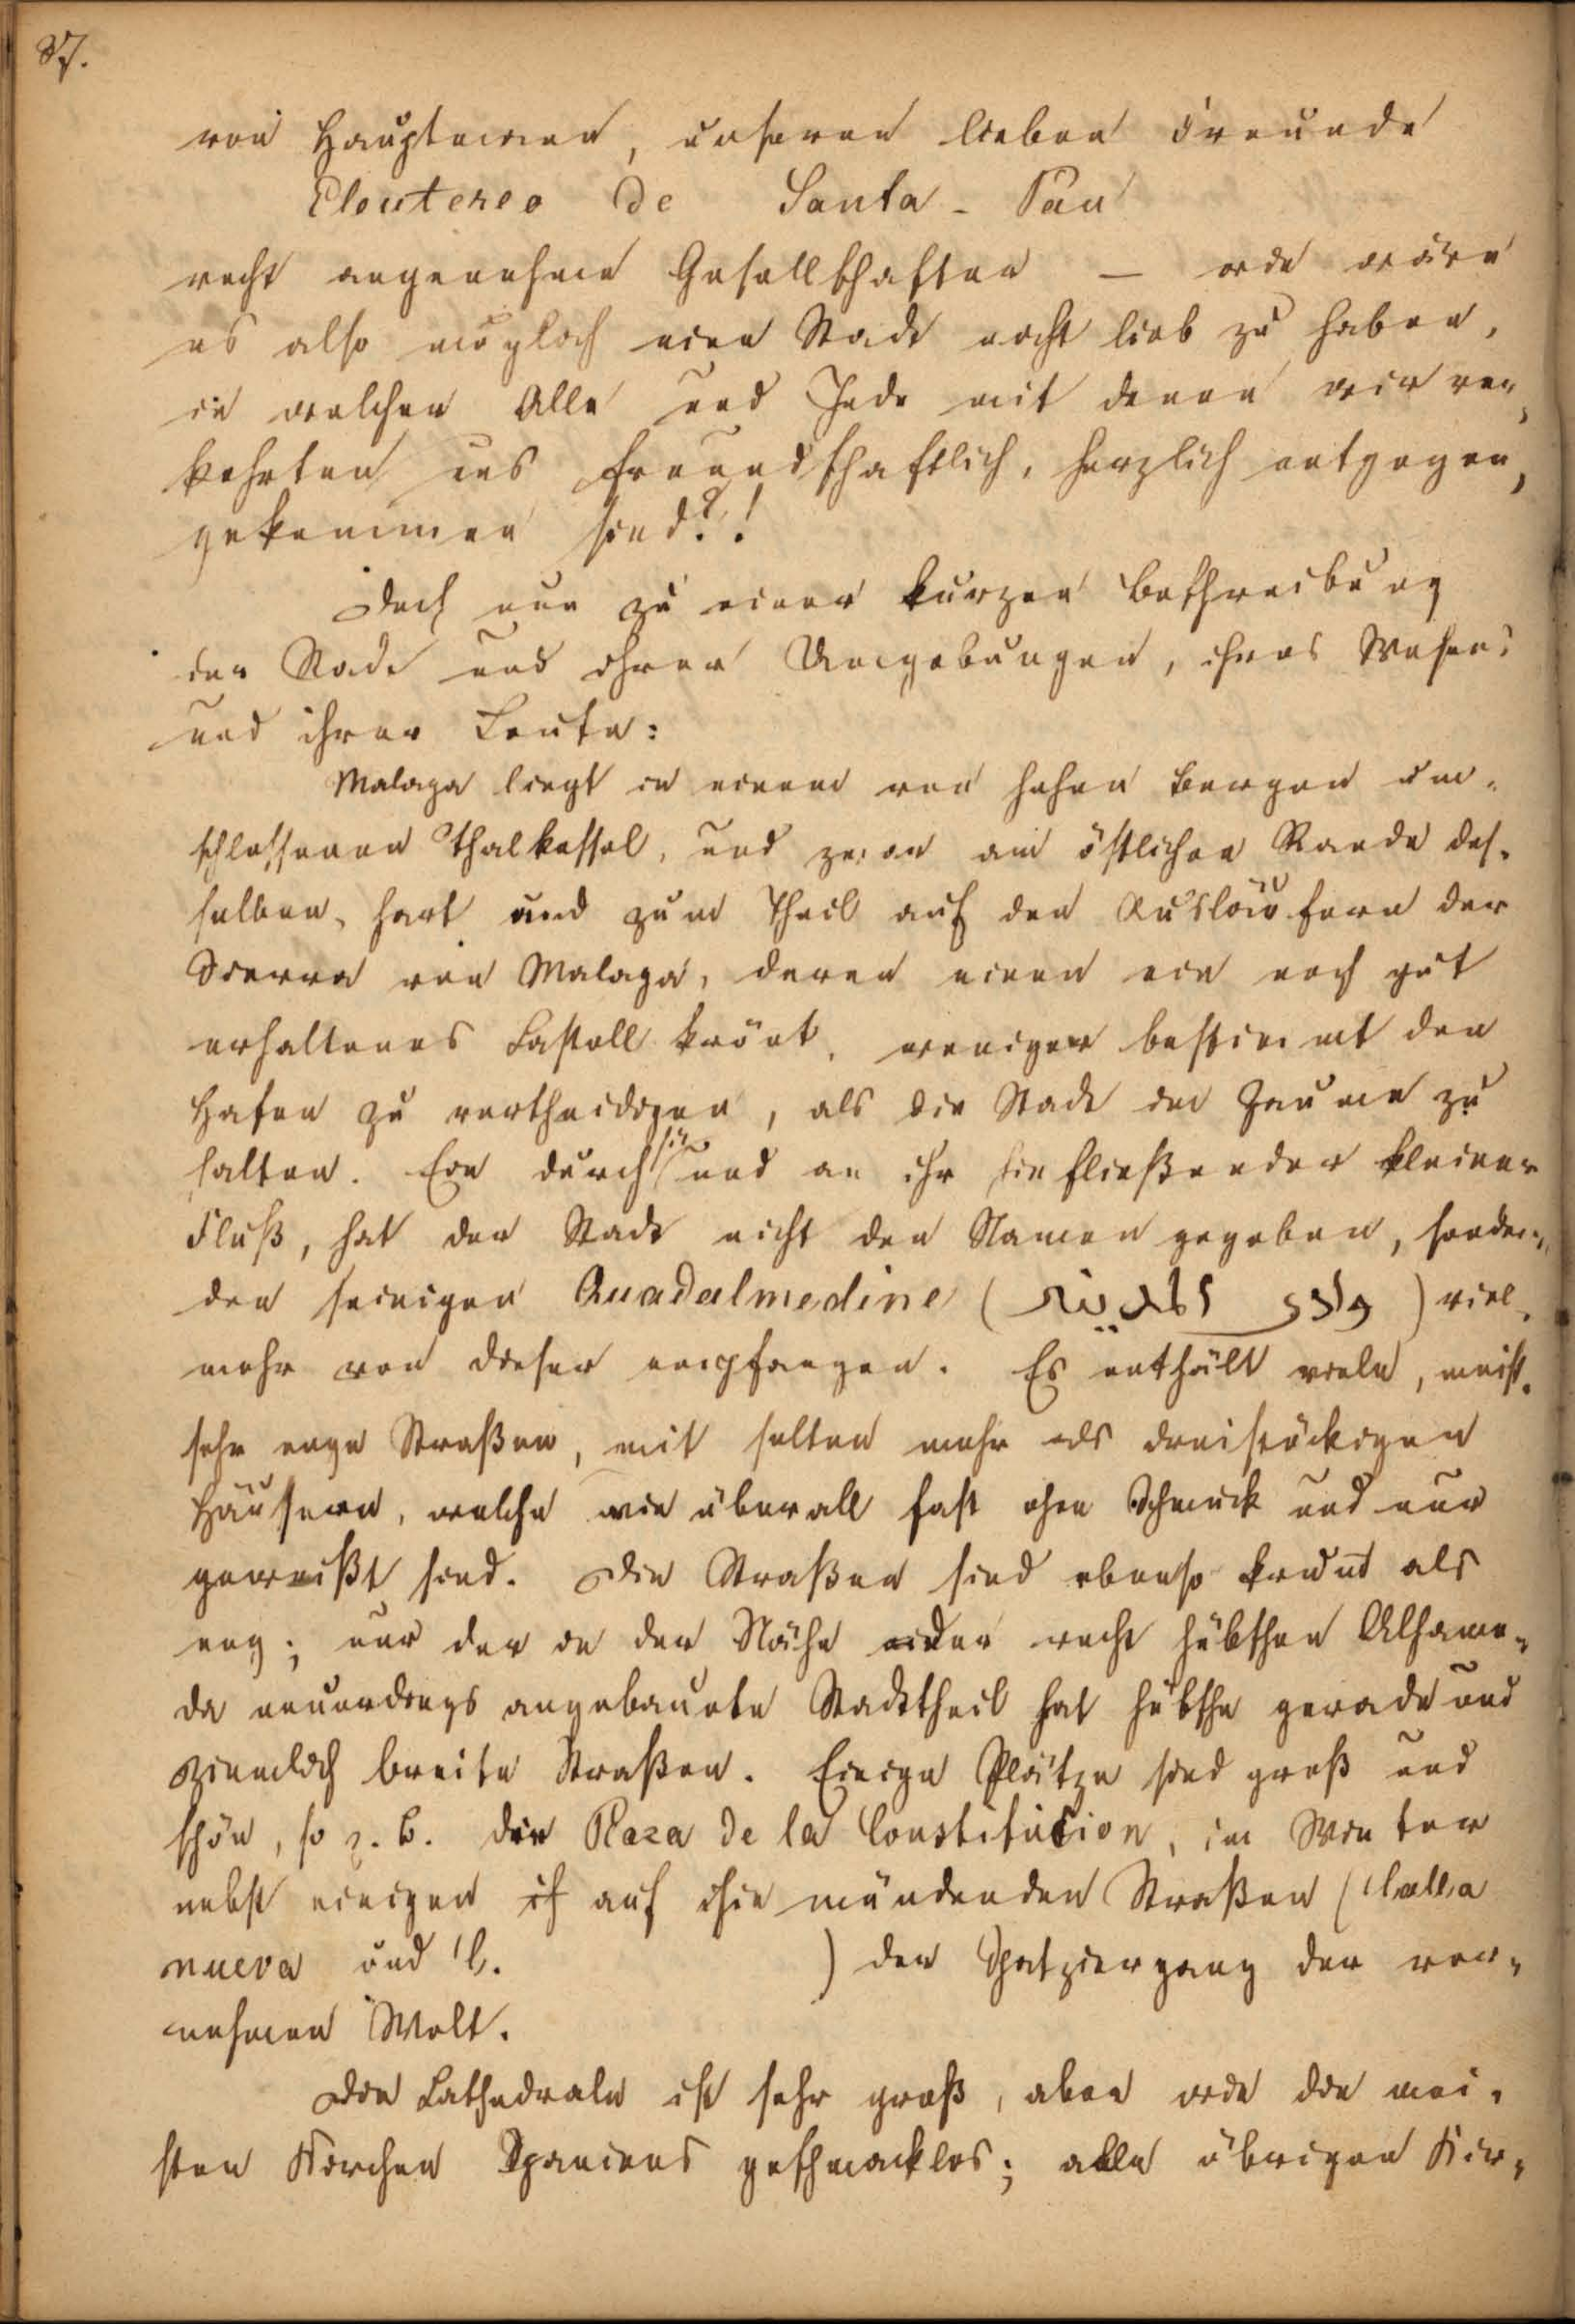 87.
von Hauptmann, unseren lieben Freunde
Eleutereo de Santa-Pau
recht angenehme Gesellschaften — wie wäre
es also möglich eine Stadt nicht lieb zu haben,
in welcher Alle und Jede mit denen wir ver-
kehrten uns freundschaftlich, herzlich entgegen-
gekommen sind?!
Doch nun zu einer kurzen Beschreibung
der Stadt und ihrer Umgebungen, ihres Wesens
und ihrer Leute:
Malaga liegt in einem von hohen Bergen um-
schlossenen Thalkessel, und zwar am östlichen Rande des-
selben, hart und zum Theil auf den Ausläufern der
Sierra von Malaga, deren einen ein noch gut
erhaltenes Castell krönt, weniger bestimmt den
Hafen zu vertheidigen, als die Stadt im Zaume zu
halten. Ein durch sie und an ihr hinfließender kleiner
Fluß, hat der Stadt nicht den Namen gegeben, sondern
den seinigen Quadalmedine (وادى المدينة) viel-
mehr von dieser empfangen. Es enthält viele, meist
sehr enge Straßen, mit selten mehr als dreistöckigen
Häusern, welche wie überall fast ohne Schmuck und nur
geweißt sind. Die Straßen sind ebenso krumm als
eng; nur der in der Nähe der recht hübschen Alhame-
da neuerdings angebaute Stadttheil hat hübsche gerade und
ziemlich breite Straßen. Einige Plätze sind groß und
schön, so z. B. die Plaza de la Constitucion, im Winter
nebst einigen auf sie mündenden Straßen (Calla
nueva und C. ) der Spatziergang der vor-
nehmen Welt.
Die Cathedrale ist sehr groß, aber wie die mei-
sten Kirchen Spaniens geschmacklos; alle übrigen Kir-